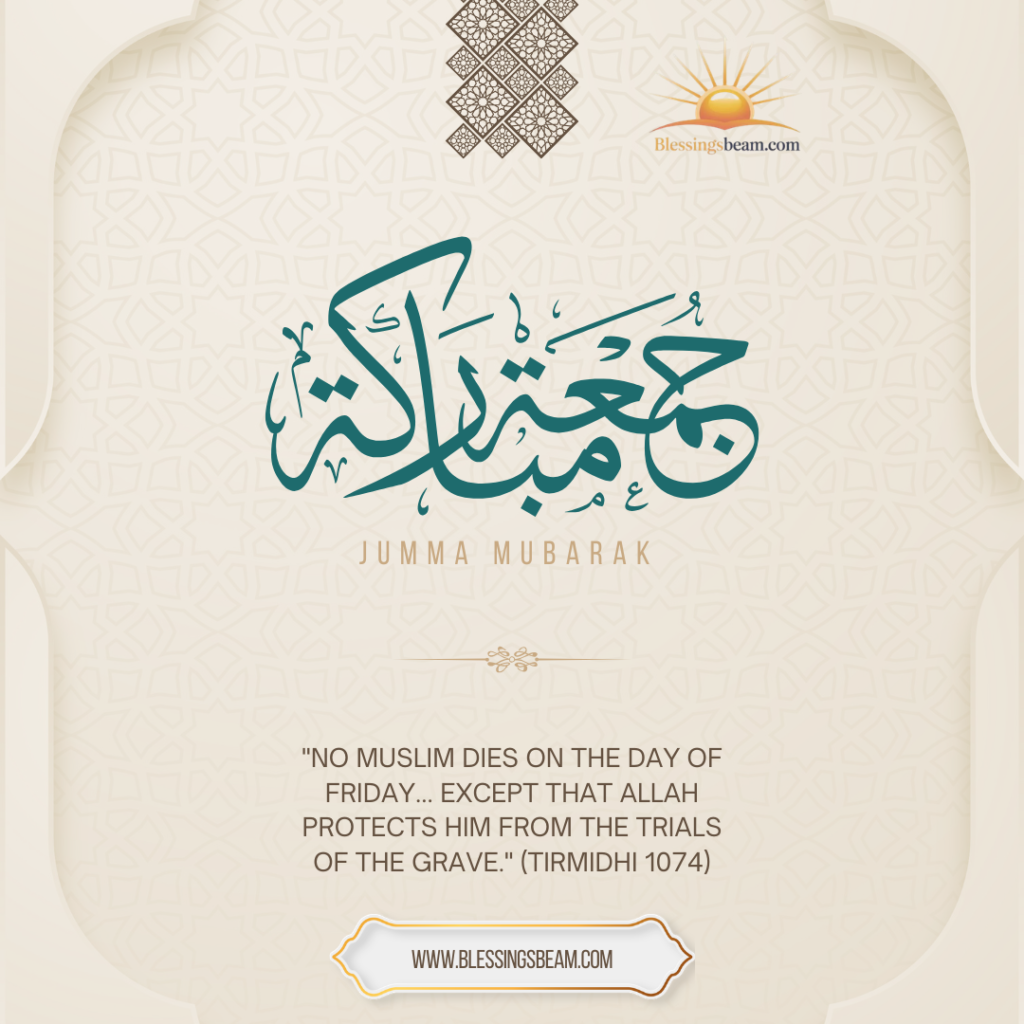 Blessingsbeam.com
جُمُعَة مُبَارَكَة
JUMMA MUBARAK
"NO MUSLIM DIES ON THE DAY OF
FRIDAY... EXCEPT THAT ALLAH
PROTECTS HIM FROM THE TRIALS
OF THE GRAVE." (TIRMIDHI 1074)
WWW.BLESSINGSBEAM.COM